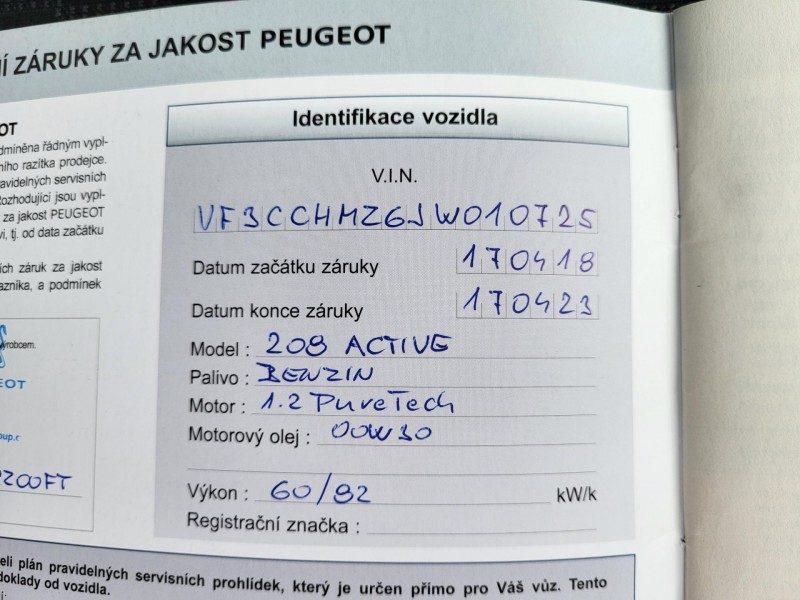 Í ZÁRUKY ZA JAKOST PEUGEOT
OT
dmíněna řádným vypl-
ního razítka prodejce.
avidelných servisních
Rozhodující jsou vypl-
za jakost PEUGEOT
vi, tj. od data začátku
ích záruk za jakost
azníka, a podmínek
výrobcem.
EOT
oup.c
2200FT
Identifikace vozidla
V.I.N.
VF3CCHMZ6JW010725
Datum začátku záruky 170418
Datum konce záruky 170423
Model : 208 ACTIVE
Palivo : BENZIN
Motor : 1.2 PureTech
Motorový olej : 00W30
Výkon : 60/82 kW/k
Registrační značka :
eli plán pravidelných servisních prohlídek, který je určen přímo pro Váš vůz. Tento
doklady od vozidla.